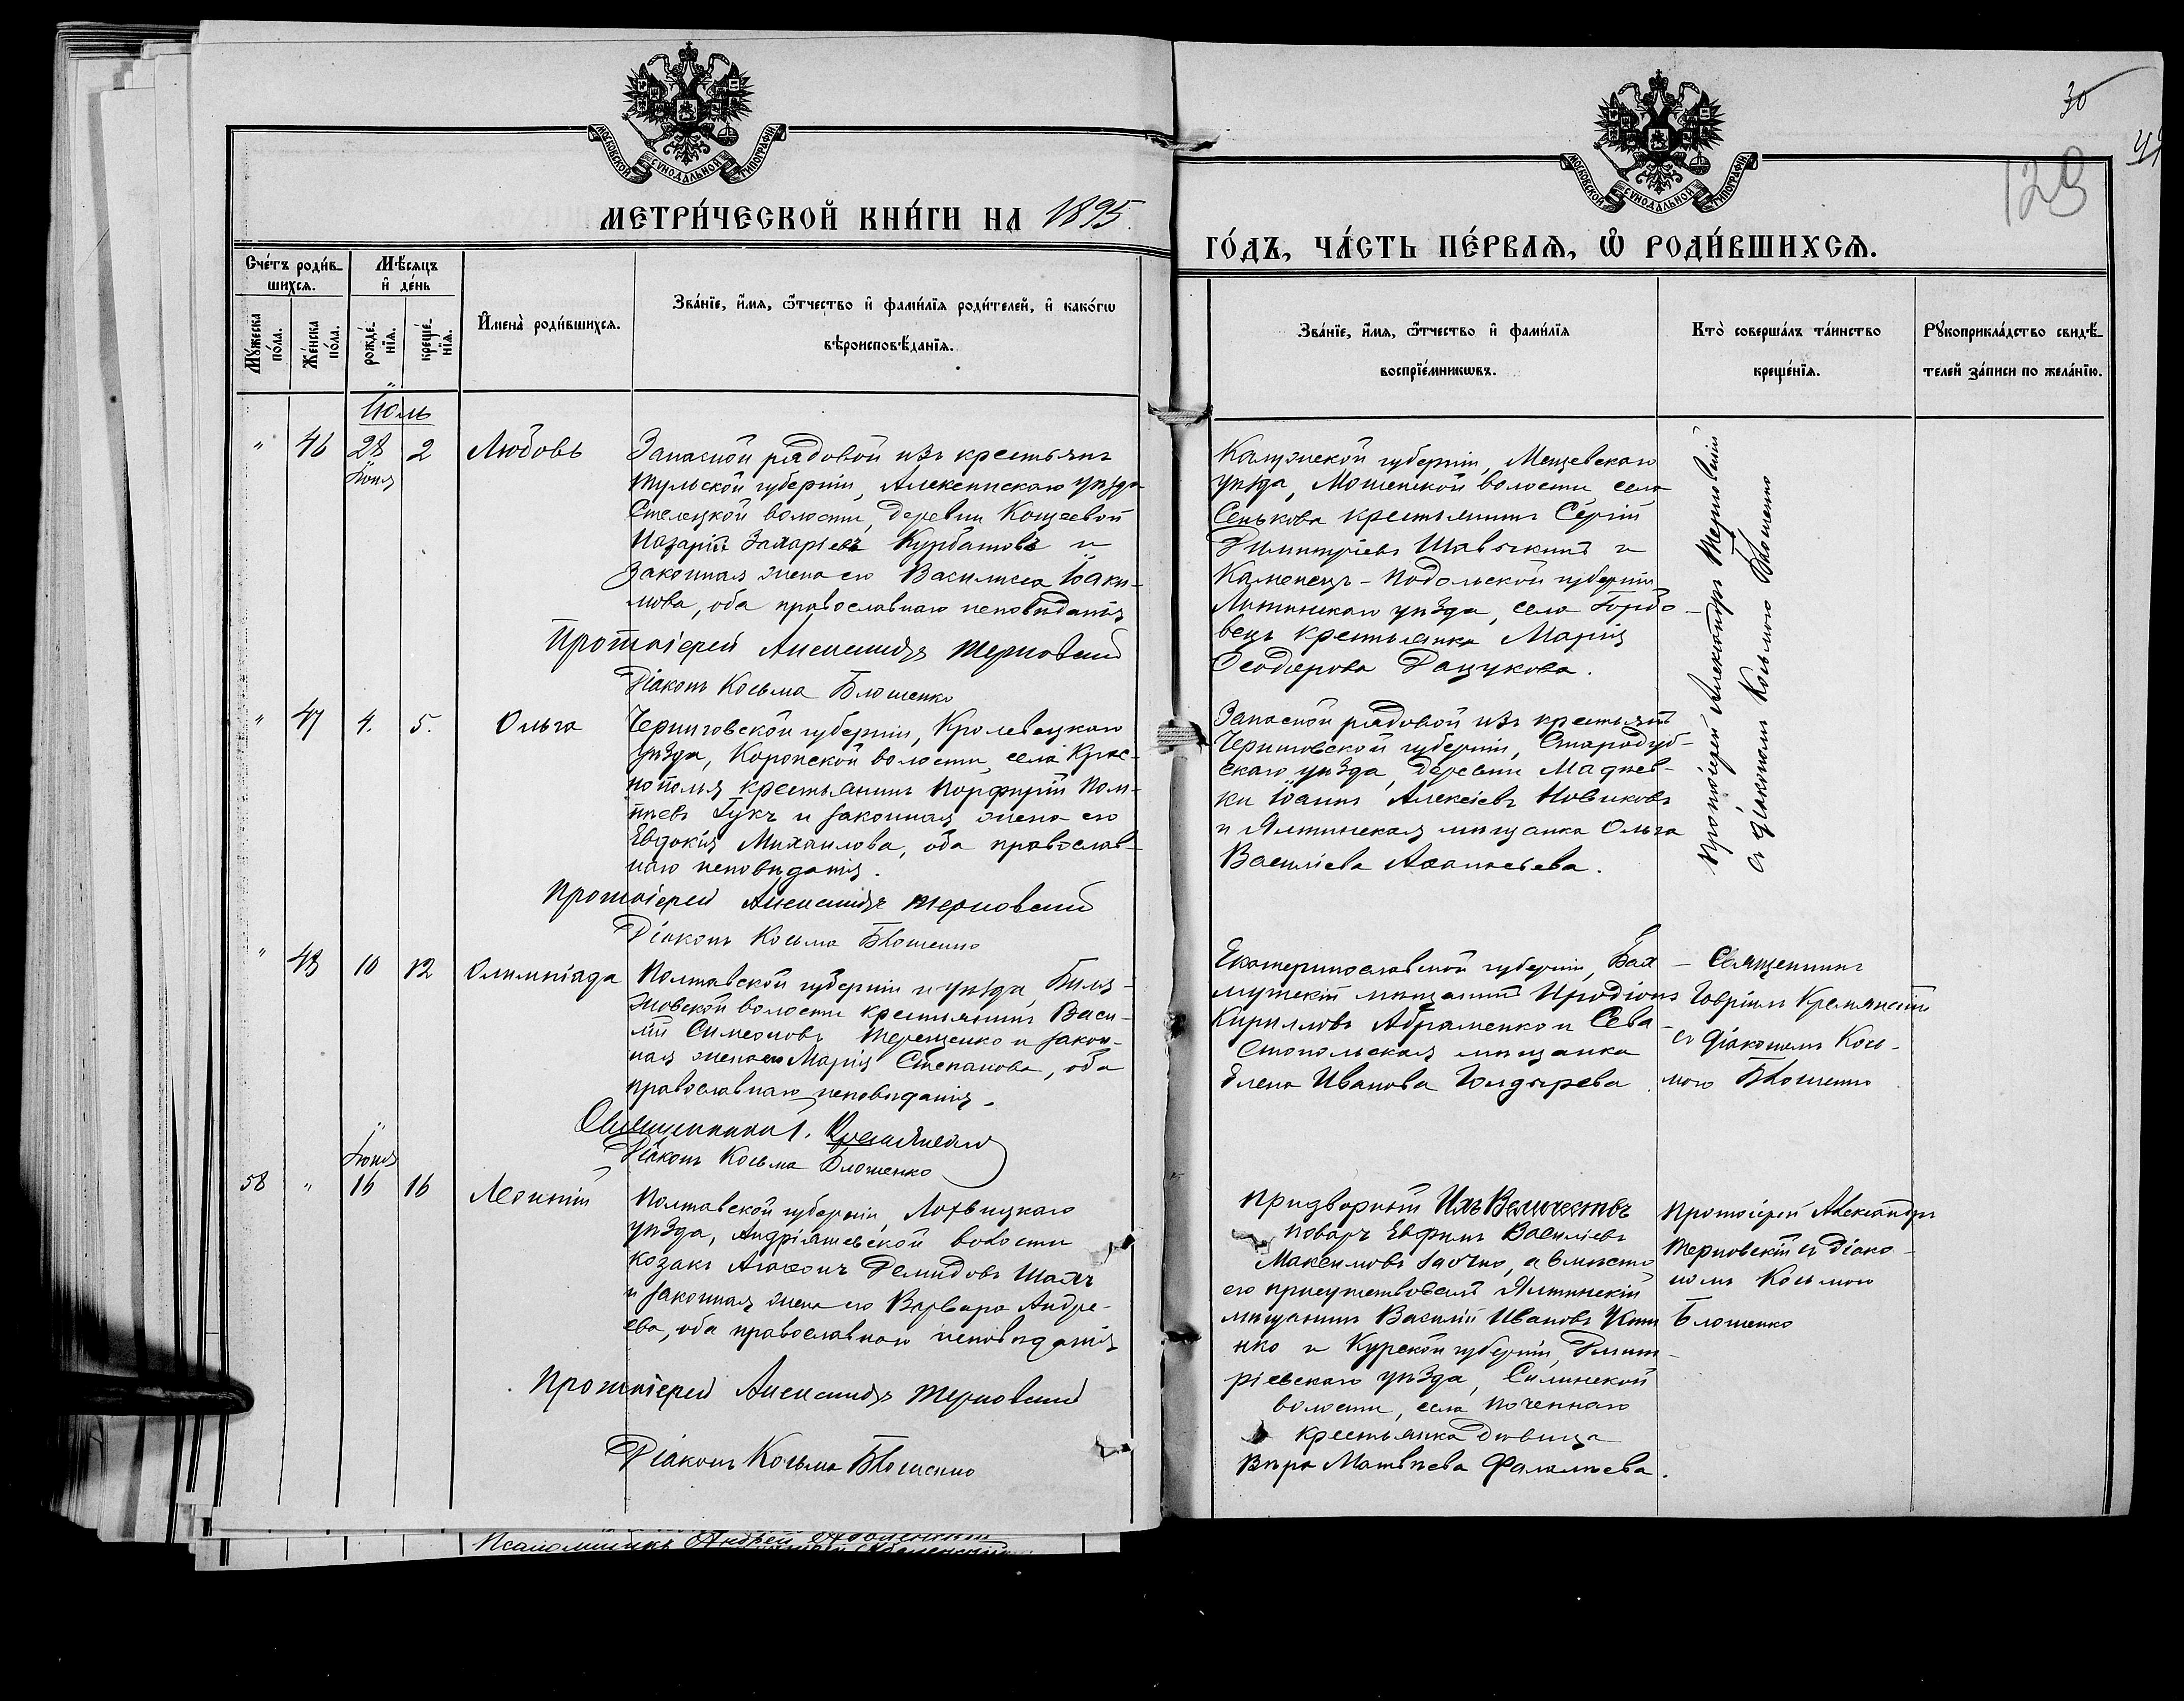 30
41
123
МОСКОВСКОЙ СѴНОДАЛЬНОЙ ТИПОГРАФІИ
МОСКОВСКОЙ СѴНОДАЛЬНОЙ ТИПОГРАФІИ
МЕТРИ́ЧЕСКОЙ КНИ́ГИ НА 1895.
ГО́ДЪ, ЧА́СТЬ ПЕ́РВАѦ, Ѡ҆ РОДИ́ВШИХСѦ.
Сче́тъ роди́в-
шихсѧ.
Мѣ́сѧцъ
и҆ де́нь
Мꙋ́жеска
по́ла.
Же́нска
по́ла.
рожде́-
нїѧ.
креще́-
нїѧ.
И҆мена̀ роди́вшихсѧ.
Зва́нїе, и҆́мѧ, ѻ҆́тчество и҆ фами́лїѧ роди́телей, и҆ како́гѡ
вѣроисповѣ́данїѧ.
Зва́нїе, и҆́мѧ, ѻ҆́тчество и҆ фами́лїѧ
воспрїе́мникѡвъ.
Кто̀ соверша́лъ та́инство
креще́нїѧ.
Рꙋкоприкла́дство свидѣ́-
телей за́писи по жела́нїю.
Іюль
" 46 28 2 Любовь
Іюня
Запасной рядовой изъ крестьянъ
Тульской губерніи, Алексинскаго уѣзда
Стелецкой волости, деревни Кощеевой
Назарій Захаріевъ Курбатовъ и
законная жена его Василиса Іоаки-
мова, оба православнаго исповѣданія
Протоіерей Александръ Терновскій
Діаконъ Косьма Блошенко
Калужской губерніи, Мещевскаго
уѣзда, Мошенской волости села
Сенькова крестьянинъ Сергій
Димитріевъ и
Каменецъ-Подольской губерніи
Литинскаго уѣзда, села Горбо-
вецъ крестьянка Марія
Ѳеодорова Дацукова.
Протоіерей Александръ Терновскій
съ діакономъ Косьмою Блошенко
" 47 4. 5. Ольга
Черниговской губерніи, Кролевецкаго
уѣзда, Коропской волости, села Крас-
нополья крестьянинъ Порфирій Пом-
піевъ Гукъ и законная жена его
Евдокія Михаилова, оба православ-
наго исповѣданія.
Протоіерей Александръ Терновскій
Діаконъ Косьма Блошенко
Запасной рядовой изъ крестьянъ
Черниговской губерніи, Стародуб-
скаго уѣзда, деревни Маднев-
ки Іоаннъ Алексіевъ Новиковъ
и Ялтинская мѣщанка Ольга
Василіева Аѳанасьева.
" 48 10 12 Олимпіада
Полтавской губерніи и уѣзда,
волости крестьянинъ Васи-
лій Симеоновъ Терещенко и закон-
ная жена его Марія Степанова, оба
православнаго исповѣданія.
Священникъ Г.
Діаконъ Косьма Блошенко
Екатеринославской губерніи, Бах-
мутскій мѣщанинъ Иродіонъ
Кирилловъ Абраменко и Сева-
стопольская мѣщанка
Елена Иванова
Священникъ
Гавріилъ
съ діакономъ Кось-
мою Блошенко
Іюня
58 " 16 16 Леонтій
Полтавской губерніи, Лохвицкаго
уѣзда, Андріяшевской волости
козакъ Агаѳонъ Демидовъ
и законная жена его Варвара Андре-
ева, оба православнаго исповѣданія
Протоіерей Александръ Терновскій
Діаконъ Косьма Блошенко
Придворный Ихъ Величествъ
поваръ Евфимъ Василіевъ
Максимовъ заочно, а вмѣсто
его присутствовалъ Ялтинскій
мѣщанинъ Василій Ивановъ
нко и Курской губерніи, Димит-
ріевскаго уѣзда, Силинской
волости, села
крестьянка дѣвица
Вѣра Матвѣева Фалалѣева.
Протоіерей Александръ
Терновскій съ діако-
номъ Косьмою
Блошенко
Псаломщикъ Андрей